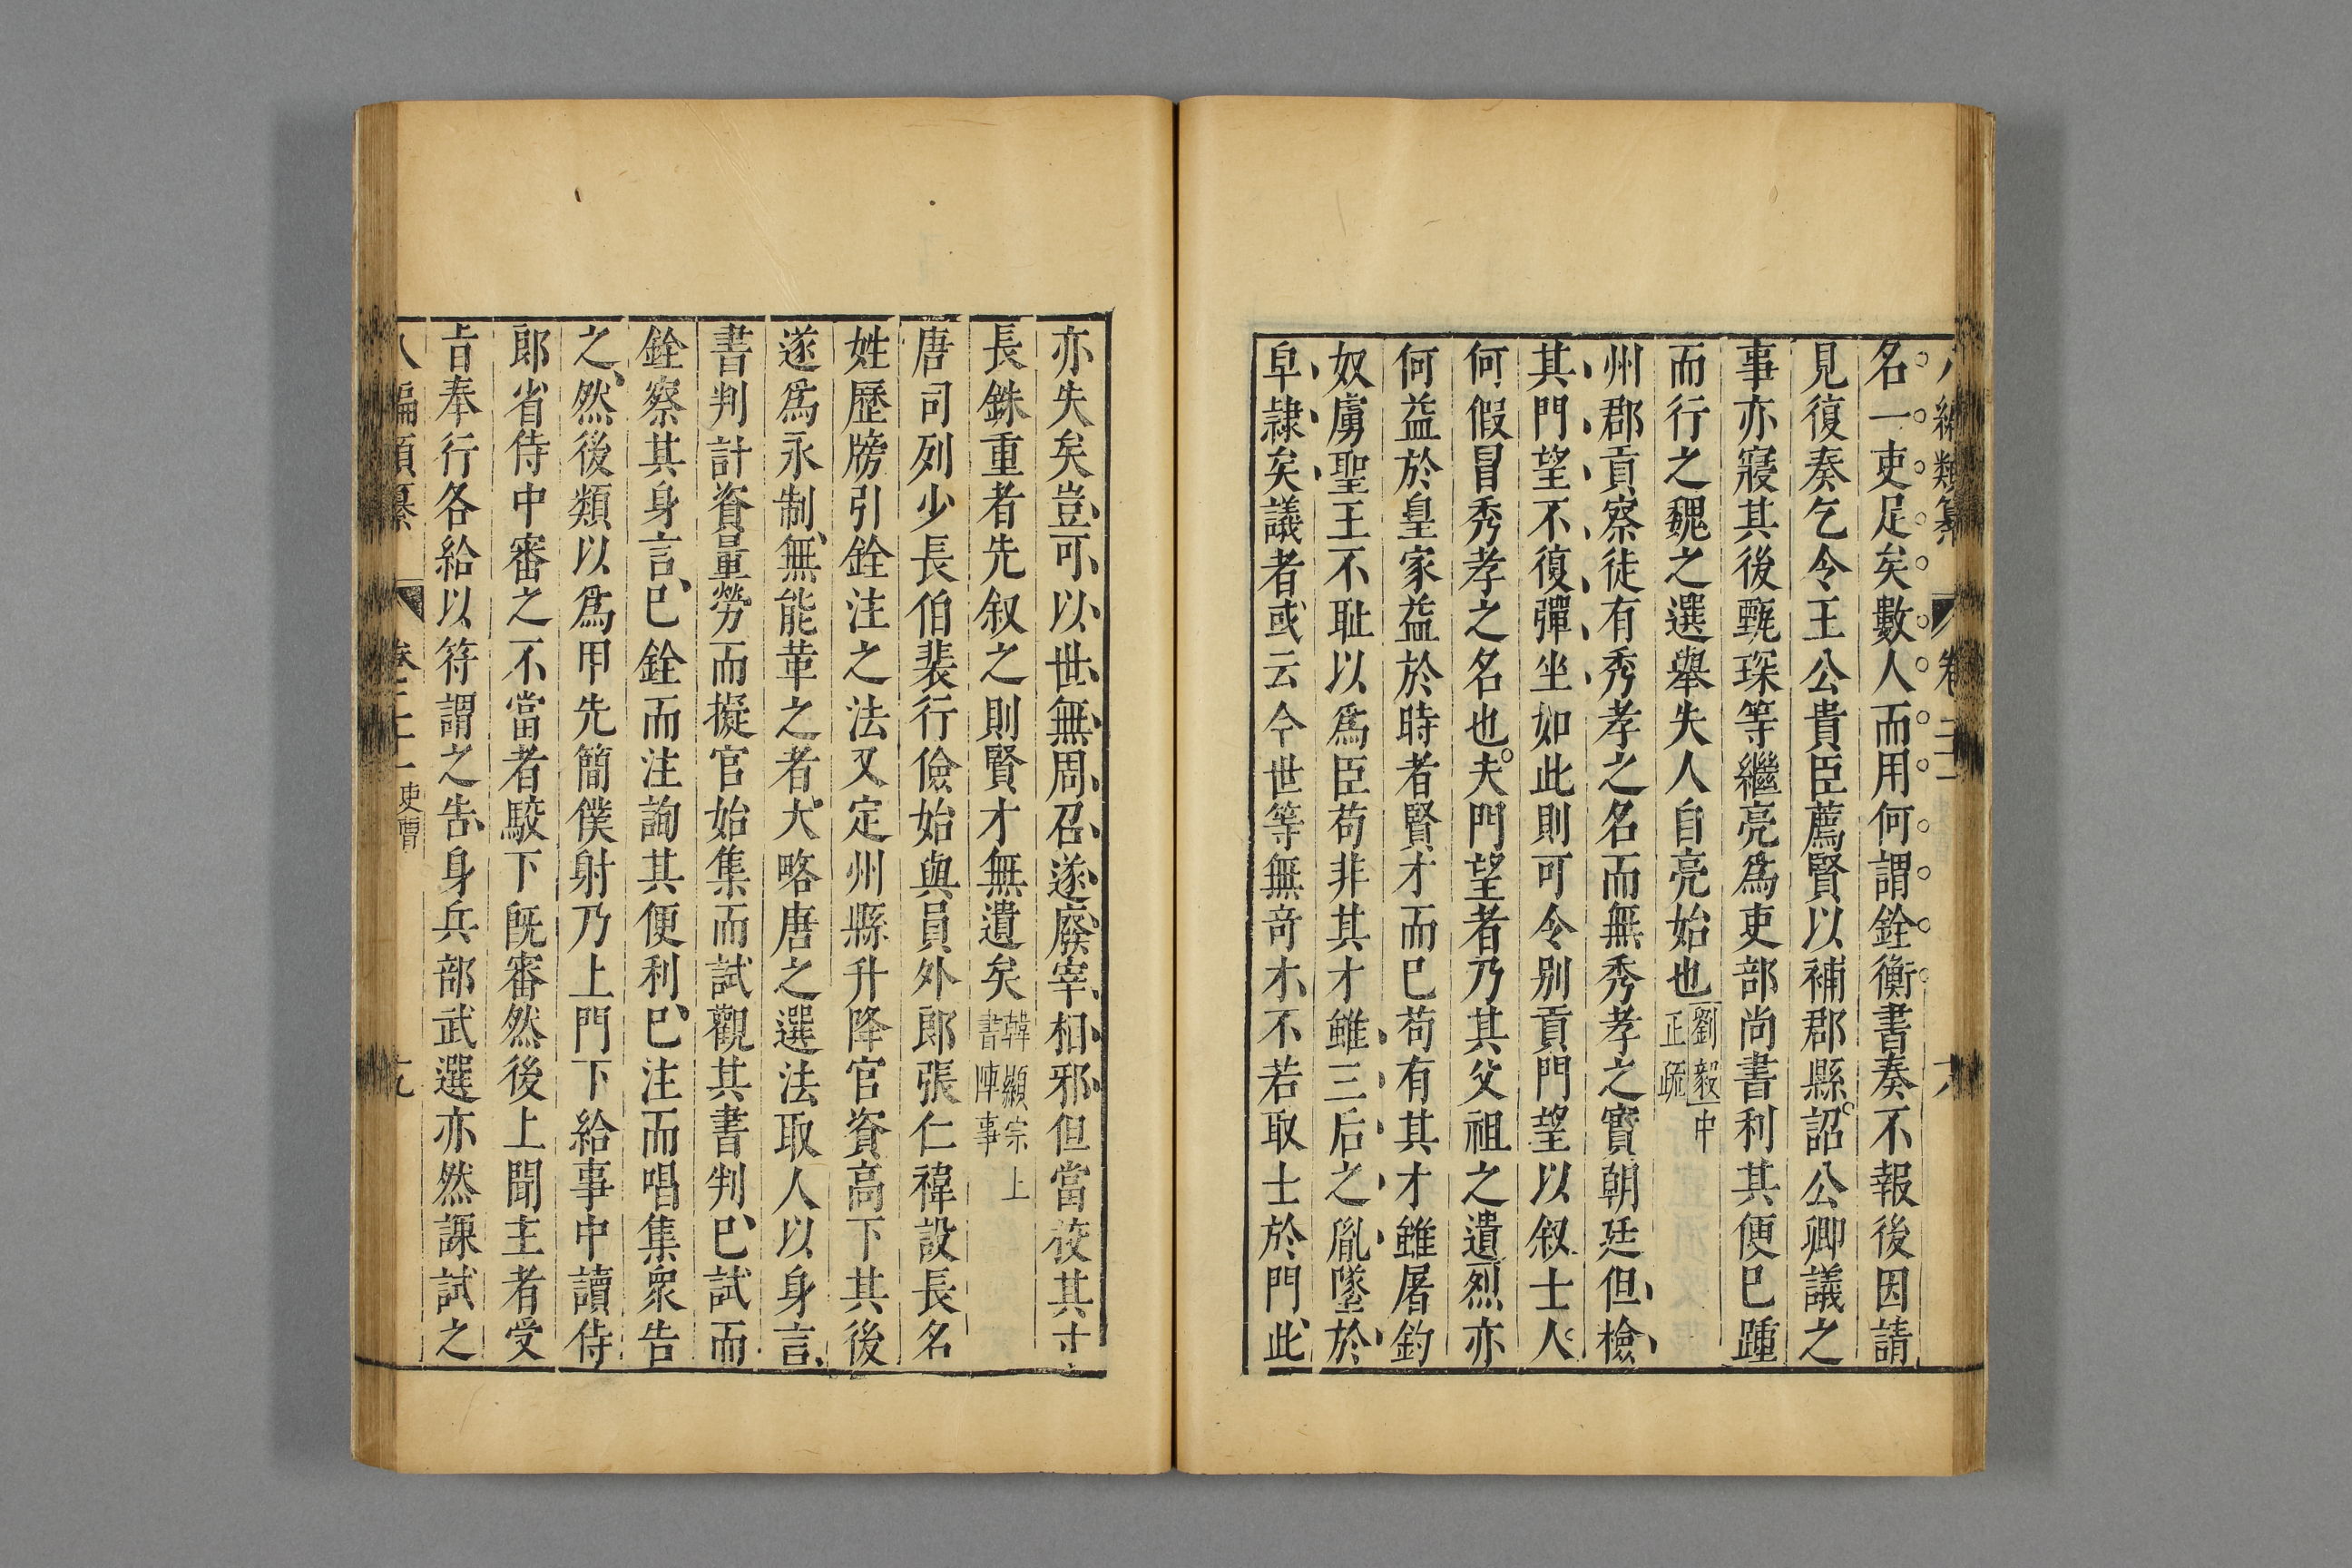 名一吏足矣數人而用何謂銓衡書奏不報後因請
見復奏乞令王公貴臣薦賢以補郡縣詔公卿議之
事亦寢其後甄琛等繼亮爲吏部尚書利其便已踵
而行之魏之選舉失人自亮始也劉毅中
正疏
州郡貢察徒有秀孝之名而無秀孝之實朝廷但檢
其門望不復彈坐如此則可令别貢門望以叙士人
何假冒秀孝之名也夫門望者乃其父祖之遺烈亦
何益於皇家益於時者賢才而已苟有其才雖屠釣
奴虜聖王不耻以爲臣苟非其才雖三后之胤墜於
皁隷矣議者或云今世等無竒才不若取士於門此
亦失矣豈可以世無周召遂廢宰相邪但當挍其寸
長銖重者先叙之則賢才無遺矣韓顯宗上
書陳事
唐司列少長伯裴行儉始與員外郎張仁禕設長名
姓歷牓引銓注之法又定州縣升降官資高下其後
遂爲永制無能革之者大略唐之選法取人以身言
書判計資量勞而擬官始集而試觀其書判已試而
銓察其身言已銓而注詢其便利已注而唱集衆告
之然後類以爲甲先簡僕射乃上門下給事中讀侍
郎省侍中審之不當者駮下旣審然後上聞主者受
旨奉行各給以符謂之告身兵部武選亦然課試之
八編類纂 卷 吏曹 十九